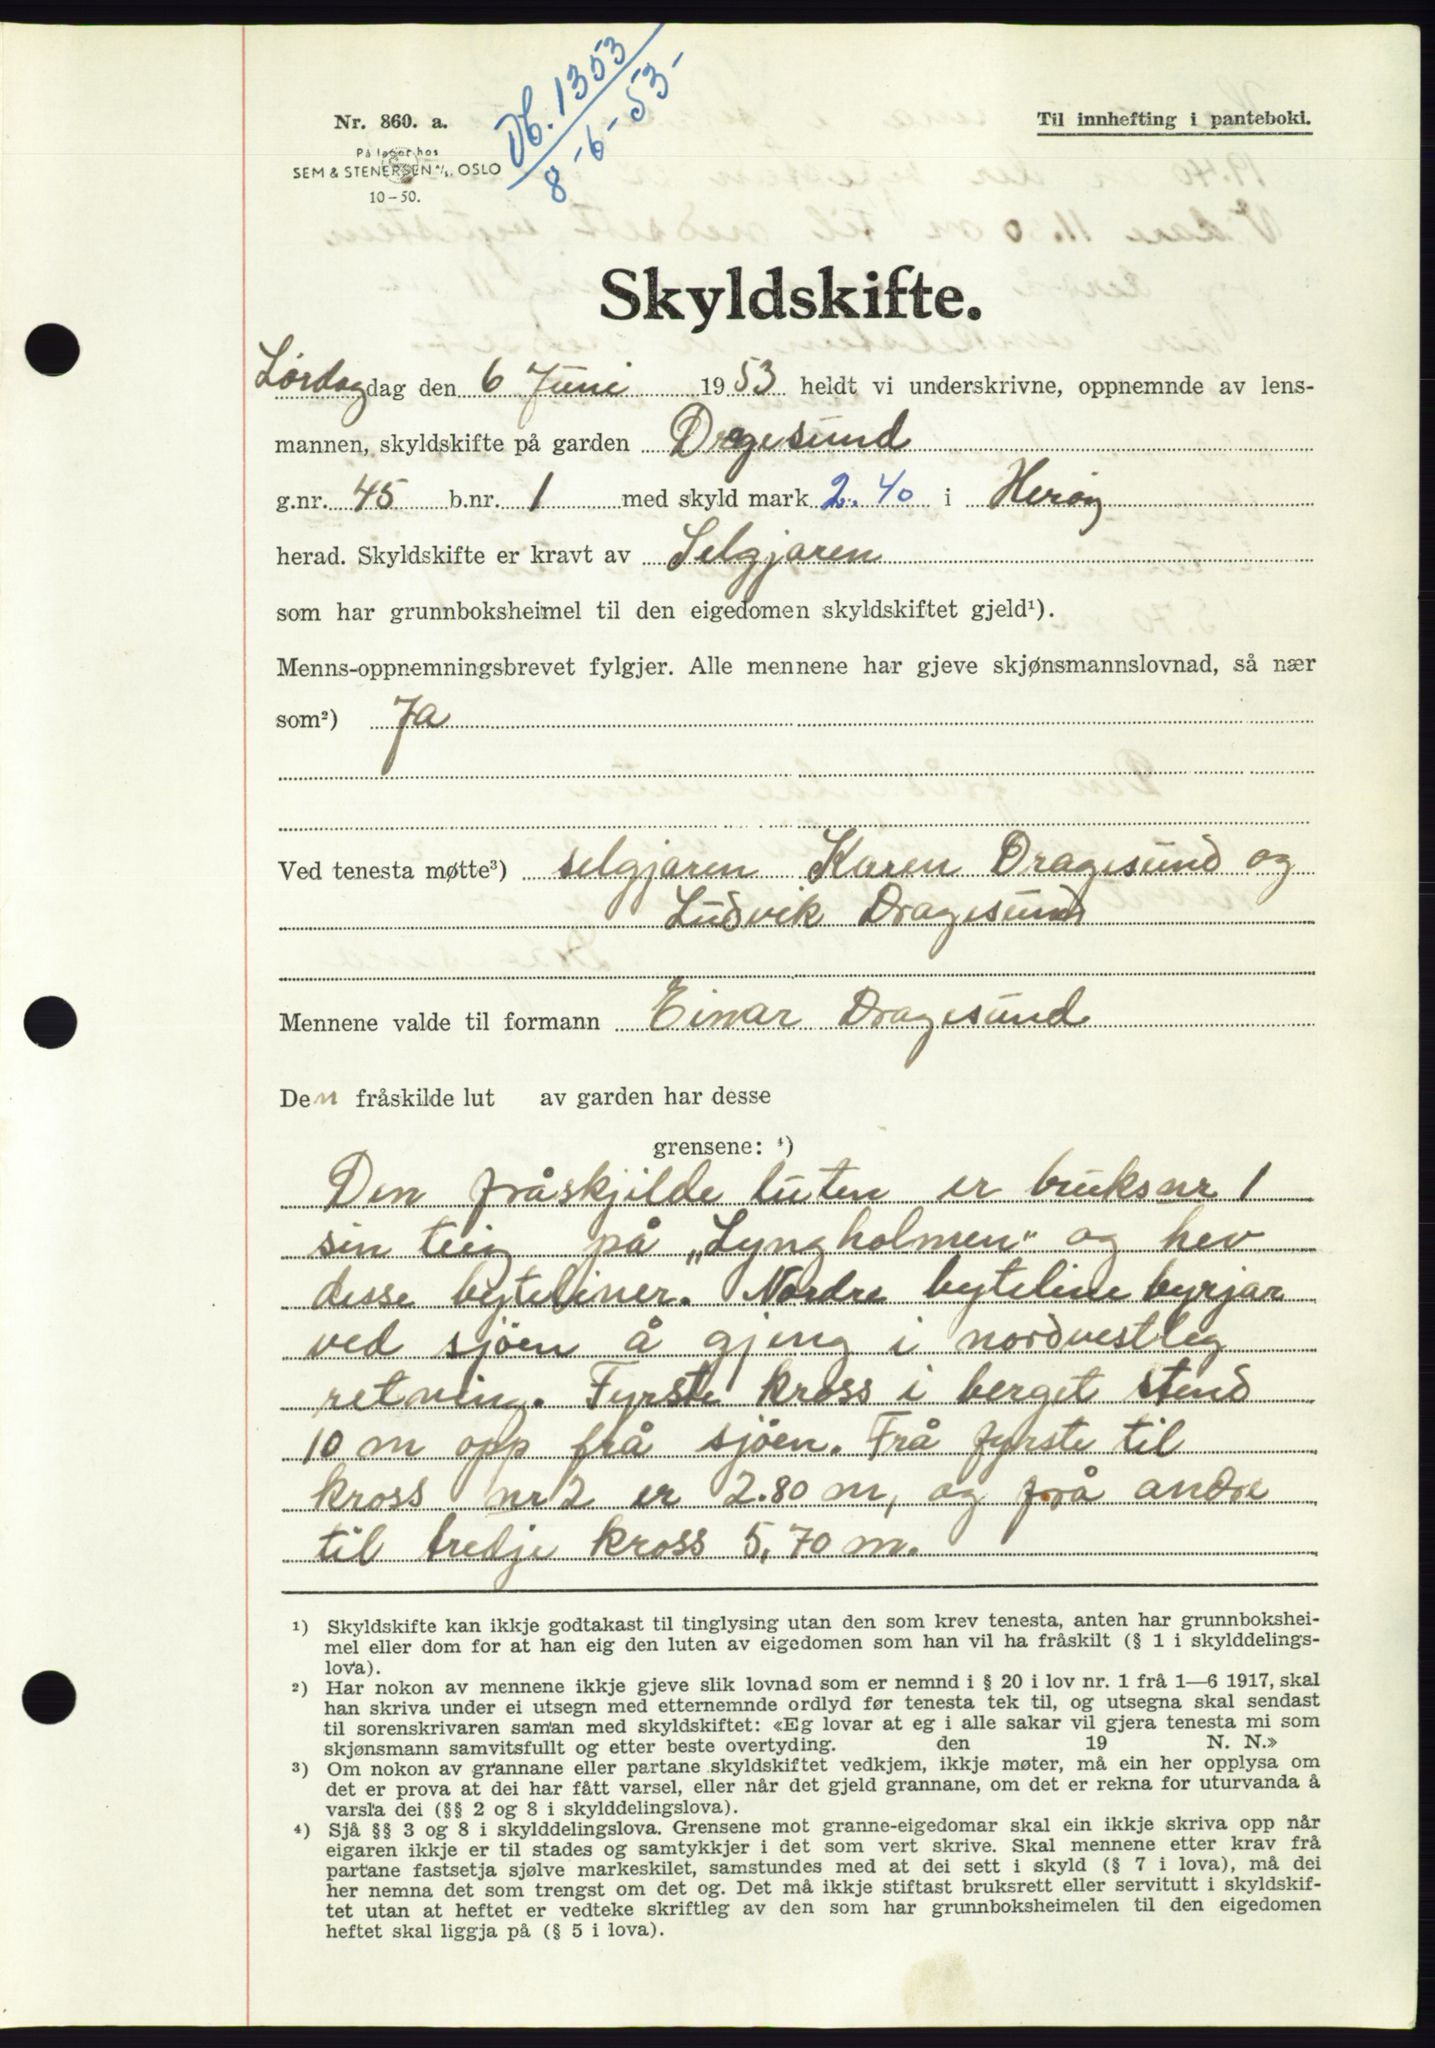 Db. 1353
8-6-53-
Nr. 860. a.
På lager hos
SEM & STENERSEN A/S, OSLO
10-50.
Til innhefting i panteboki.
Skyldskifte.
Lørdag dag den 6 Juni 1953 heldt vi underskrivne, oppnemnde av lens-
mannen, skyldskifte på garden Dragesund
g.nr. 45 b.nr. 1 med skyld mark 2.40 i Herøy
herad. Skyldskifte er kravt av Selgjaren
som har grunnboksheimel til den eigedomen skyldskiftet gjeld¹).
Menns-oppnemningsbrevet fylgjer. Alle mennene har gjeve skjønsmannslovnad, så nær
som²) Ja
Ved tenesta møtte³) selgjaren Karen Dragesund og
Ludvik Dragesund
Mennene valde til formann Einar Dragesund
Den fråskilde lut av garden har desse
grensene: ⁴)
Den fråskjilde luten er bruksnr 1
sin teig på „Lyngholmen" og hev
desse byteliner. Nordre byteline byrjar
ved sjöen å gjeng i nordvestleg
retning. Fyrste kross i berget stend
10 m opp frå sjöen. Frå fyrste til
kross nr 2 er 2.80 m, og frå andre
til tredje kross 5,70 m.
¹) Skyldskifte kan ikkje godtakast til tinglysing utan den som krev tenesta, anten har grunnbokshei-
mel eller dom for at han eig den luten av eigedomen som han vil ha fråskilt (§ 1 i skylddelings-
lova).
²) Har nokon av mennene ikkje gjeve slik lovnad som er nemnd i § 20 i lov nr. 1 frå 1—6 1917, skal
han skriva under ei utsegn med etternemnde ordlyd før tenesta tek til, og utsegna skal sendast
til sorenskrivaren saman med skyldskiftet: «Eg lovar at eg i alle sakar vil gjera tenesta mi som
skjønsmann samvitsfullt og etter beste overtyding. den 19 N. N.»
³) Om nokon av grannane eller partane skyldskiftet vedkjem, ikkje møter, må ein her opplysa om
det er prova at dei har fått varsel, eller når det gjeld grannane, om det er rekna for uturvanda å
varsla dei (§§ 2 og 8 i skylddelingslova).
⁴) Sjå §§ 3 og 8 i skylddelingslova. Grensene mot granne-eigedomar skal ein ikkje skriva opp når
eigaren ikkje er til stades og samtykkjer i det som vert skrive. Skal mennene etter krav frå
partane fastsetja sjølve markeskilet, samstundes med at dei sett i skyld (§ 7 i lova), må dei
her nemna det som trengst om det og. Det må ikkje stiftast bruksrett eller servitutt i skyldskif-
tet utan at heftet er vedteke skriftleg av den som har grunnboksheimelen til den eigedomen
heftet skal liggja på (§ 5 i lova).